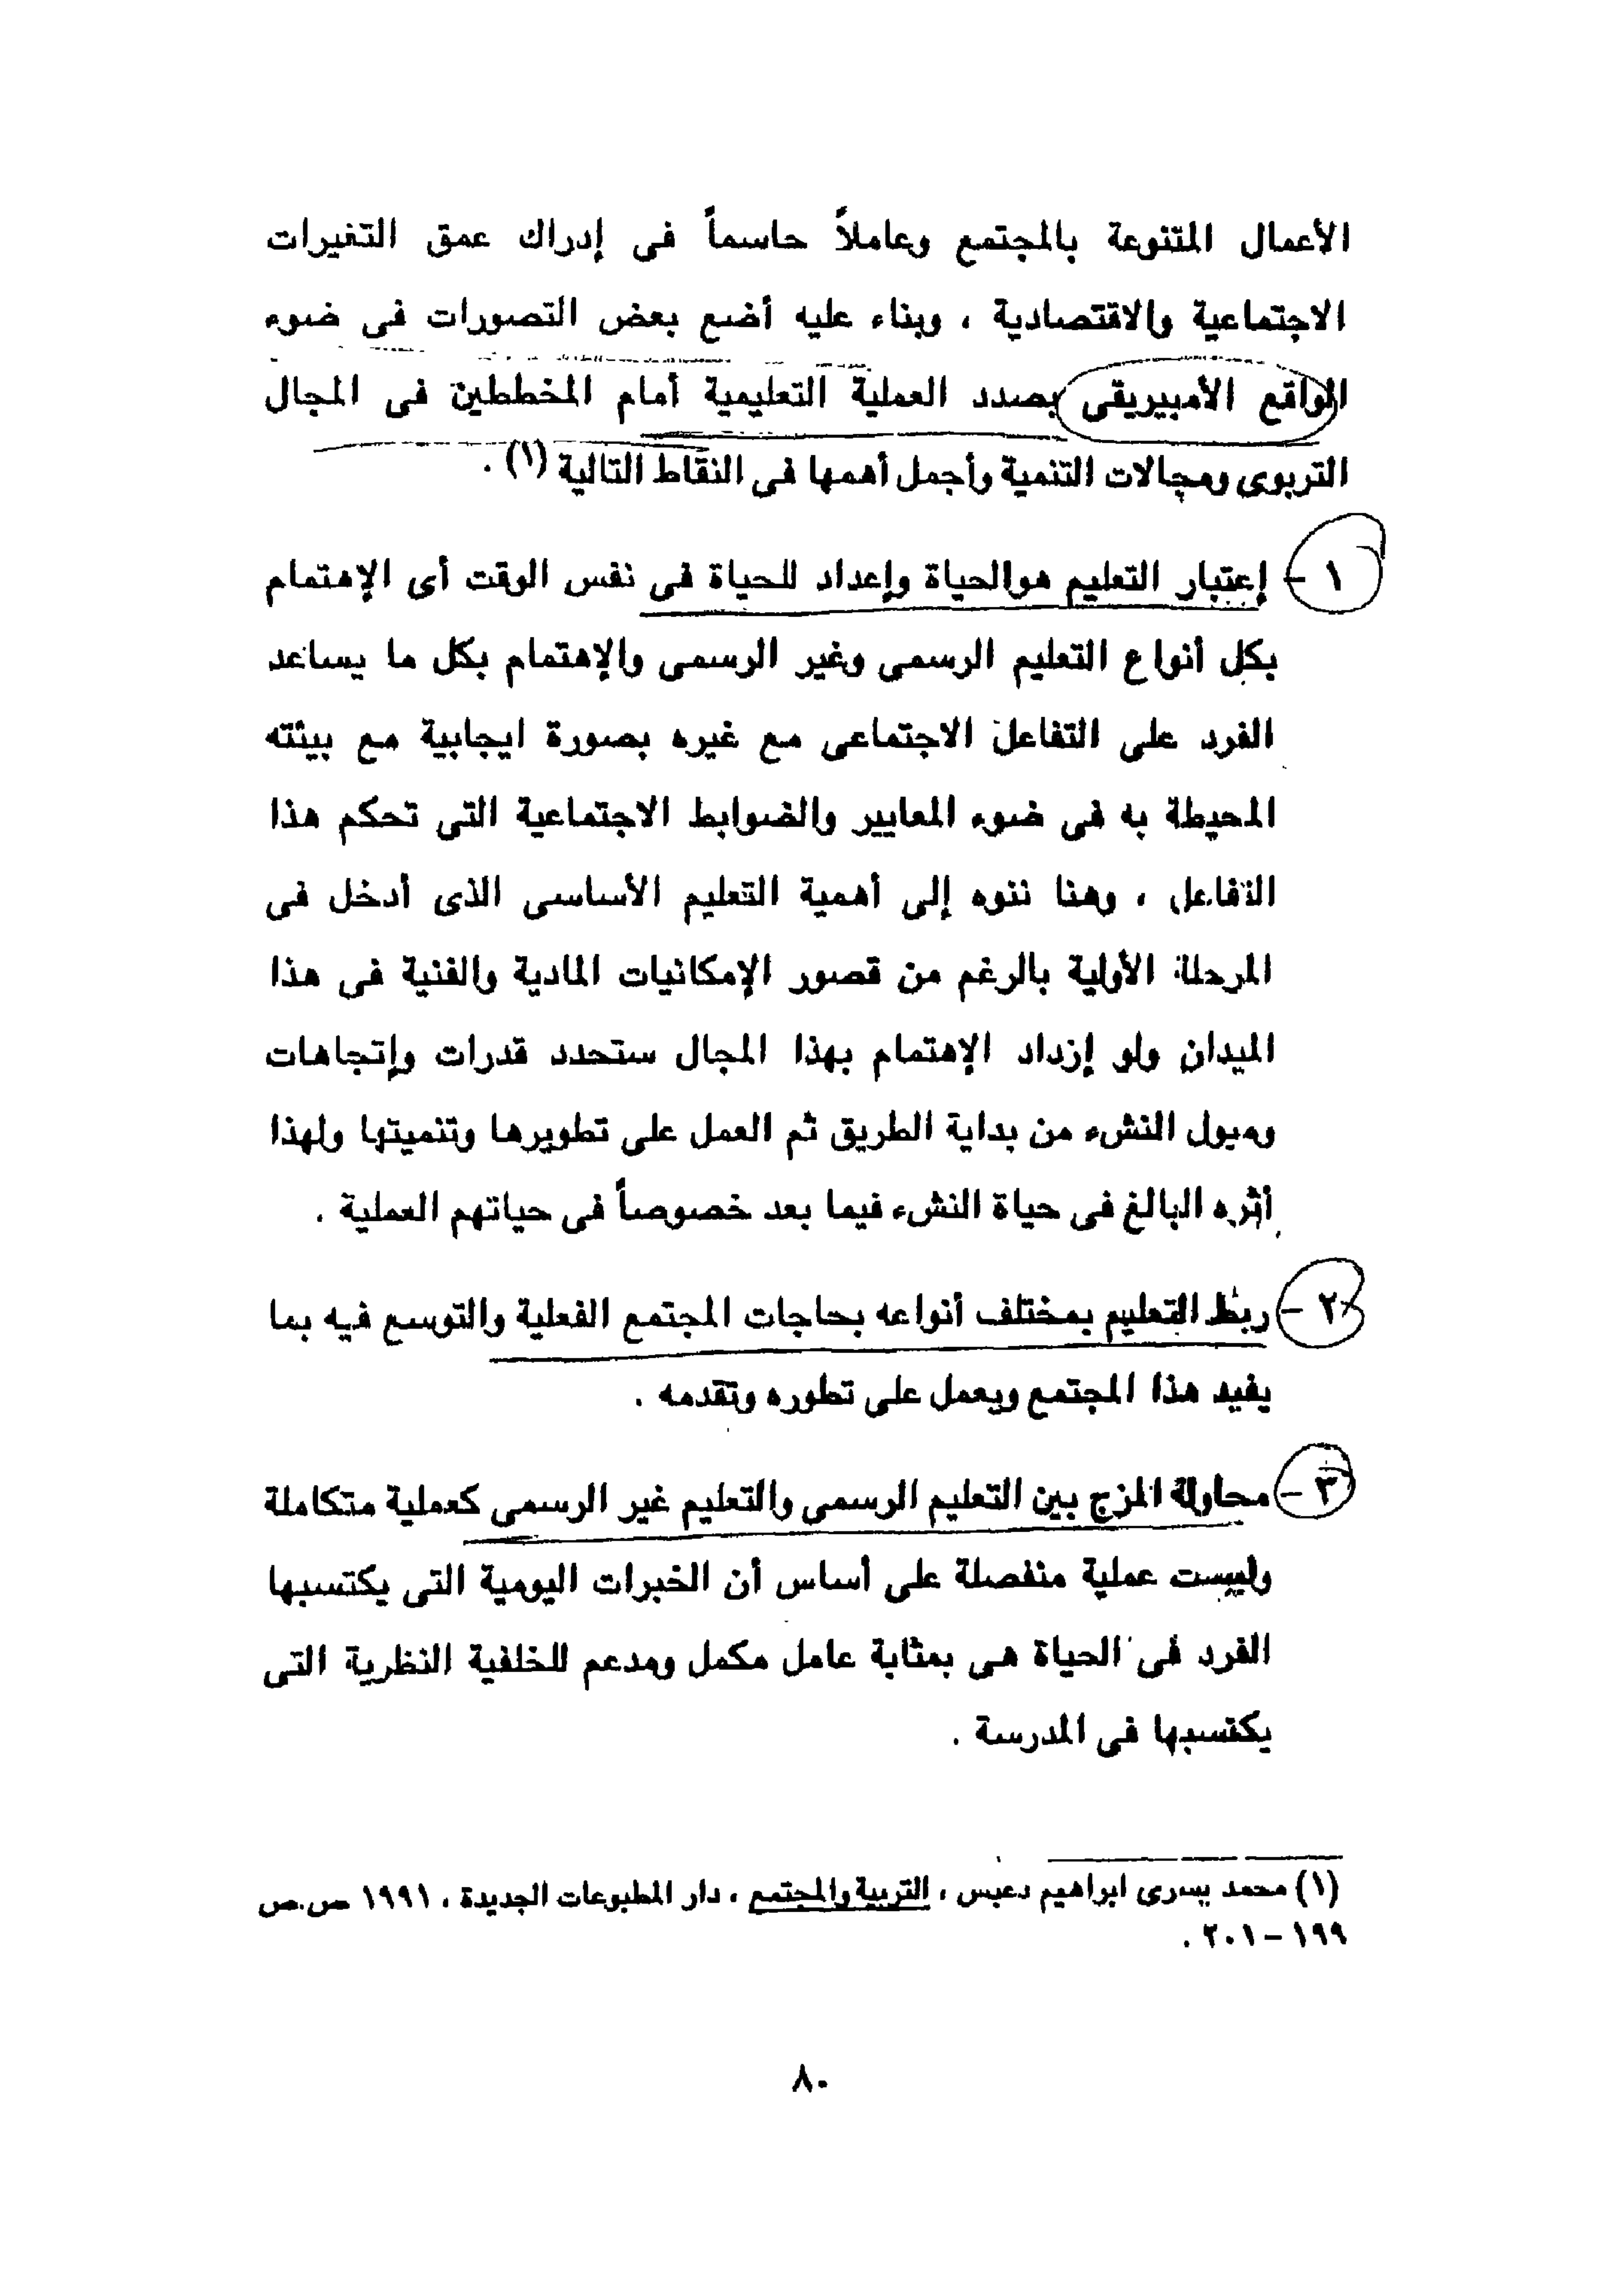 الأعمال المتنوعة بالمجتمع وعاملاً حاسماً فى إدراك عمق التغيرات
الاجتماعية والاقتصادية ، وبناء عليه أضع بعض التصورات فى ضوء
الواقع الأمبيريقى بصدد العملية التعليمية أمام المخططين فى المجال
التربوى ومجالات التنمية وأجمل أهمها فى النقاط التالية (١) .
١ - إعتبار التعليم هوالحياة وإعداد للحياة فى نفس الوقت أى الإهتمام
بكل أنواع التعليم الرسمى وغير الرسمى والإهتمام بكل ما يساعد
الفرد على التفاعل الاجتماعى مع غيره بصورة ايجابية مع بيئته
المحيطة به فى ضوء المعايير والضوابط الاجتماعية التى تحكم هذا
التفاعل ، وهنا ننوه إلى أهمية التعليم الأساسى الذى أدخل فى
المرحلة الأولية بالرغم من قصور الإمكانيات المادية والفنية فى هذا
الميدان ولو إزداد الإهتمام بهذا المجال ستحدد قدرات وإتجاهات
وميول النشء من بداية الطريق ثم العمل على تطويرها وتنميتها ولهذا
أثره البالغ فى حياة النشء فيما بعد خصوصاً فى حياتهم العملية .
٢ - ربط التعليم بمختلف أنواعه بحاجات المجتمع الفعلية والتوسع فيه بما
يفيد هذا المجتمع ويعمل على تطوره وتقدمه .
٣ - محاولة المزج بين التعليم الرسمى والتعليم غير الرسمى كعملية متكاملة
وليست عملية منفصلة على أساس أن الخبرات اليومية التى يكتسبها
الفرد فى الحياة هى بمثابة عامل مكمل ومدعم للخلفية النظرية التى
يكتسبها فى المدرسة .
(١) محمد يسرى ابراهيم دعبس ، التربية والمجتمع ، دار المطبوعات الجديدة ، ١٩٩١ ص.ص
١٩٩ - ٢٠١ .
٨٠